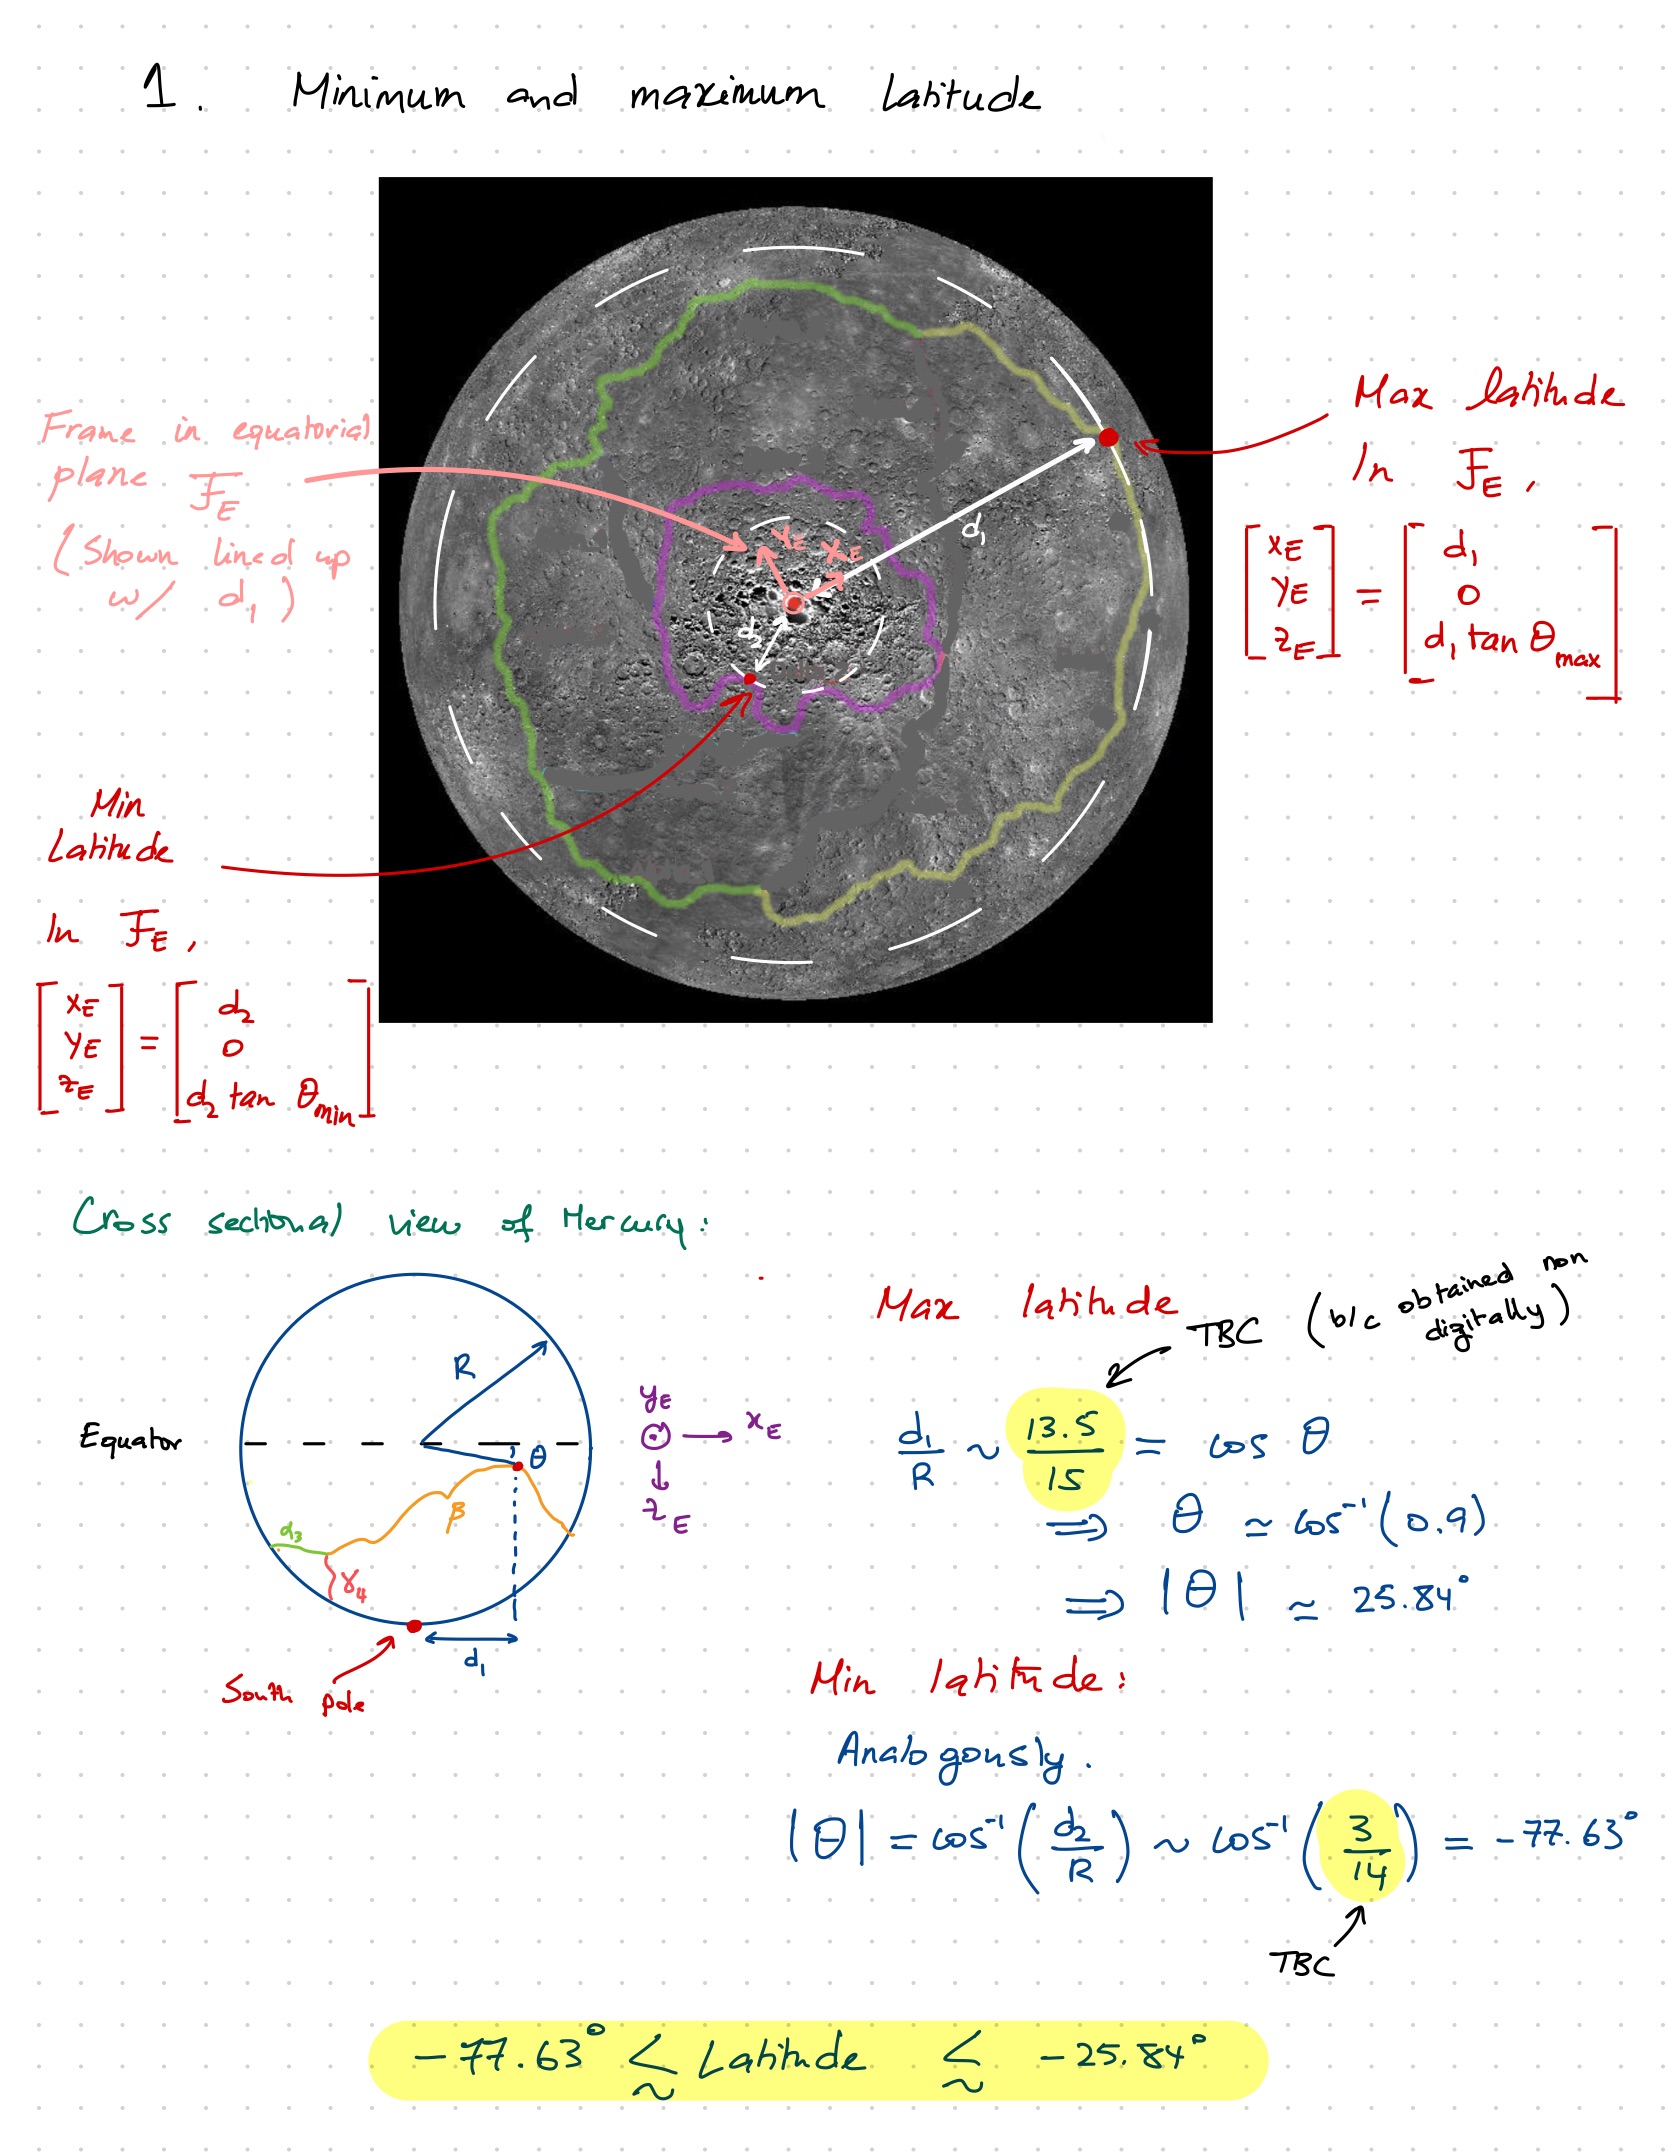 1. Minimum and maximum latitude
Frame in equatorial
plane F_E
(Shown lined up
w/ d₁)
Y_E
X_E
d₁
d₂
Max latitude
In F_E,
[x_E y_E z_E] = [d₁ 0 d₁ tan θ_max]
Min
Latitude
In F_E,
[x_E y_E z_E] = [d₂ 0 d₂ tan θ_min]
Cross sectional view of Mercury:
R
Equator
θ
β
α₃
γ₄
d₁
South pole
y_E
x_E
z_E
Max latitude
TBC (b/c obtained non
digitally)
d₁/R ~ 13.5/15 = cos θ
⟹ θ ≃ cos⁻¹(0.9)
⟹ |θ| ≃ 25.84°
Min latitude:
Analogously.
|θ| = cos⁻¹(d₂/R) ~ cos⁻¹(3/14) = -77.63°
TBC
-77.63° ≲ Latitude ≲ -25.84°